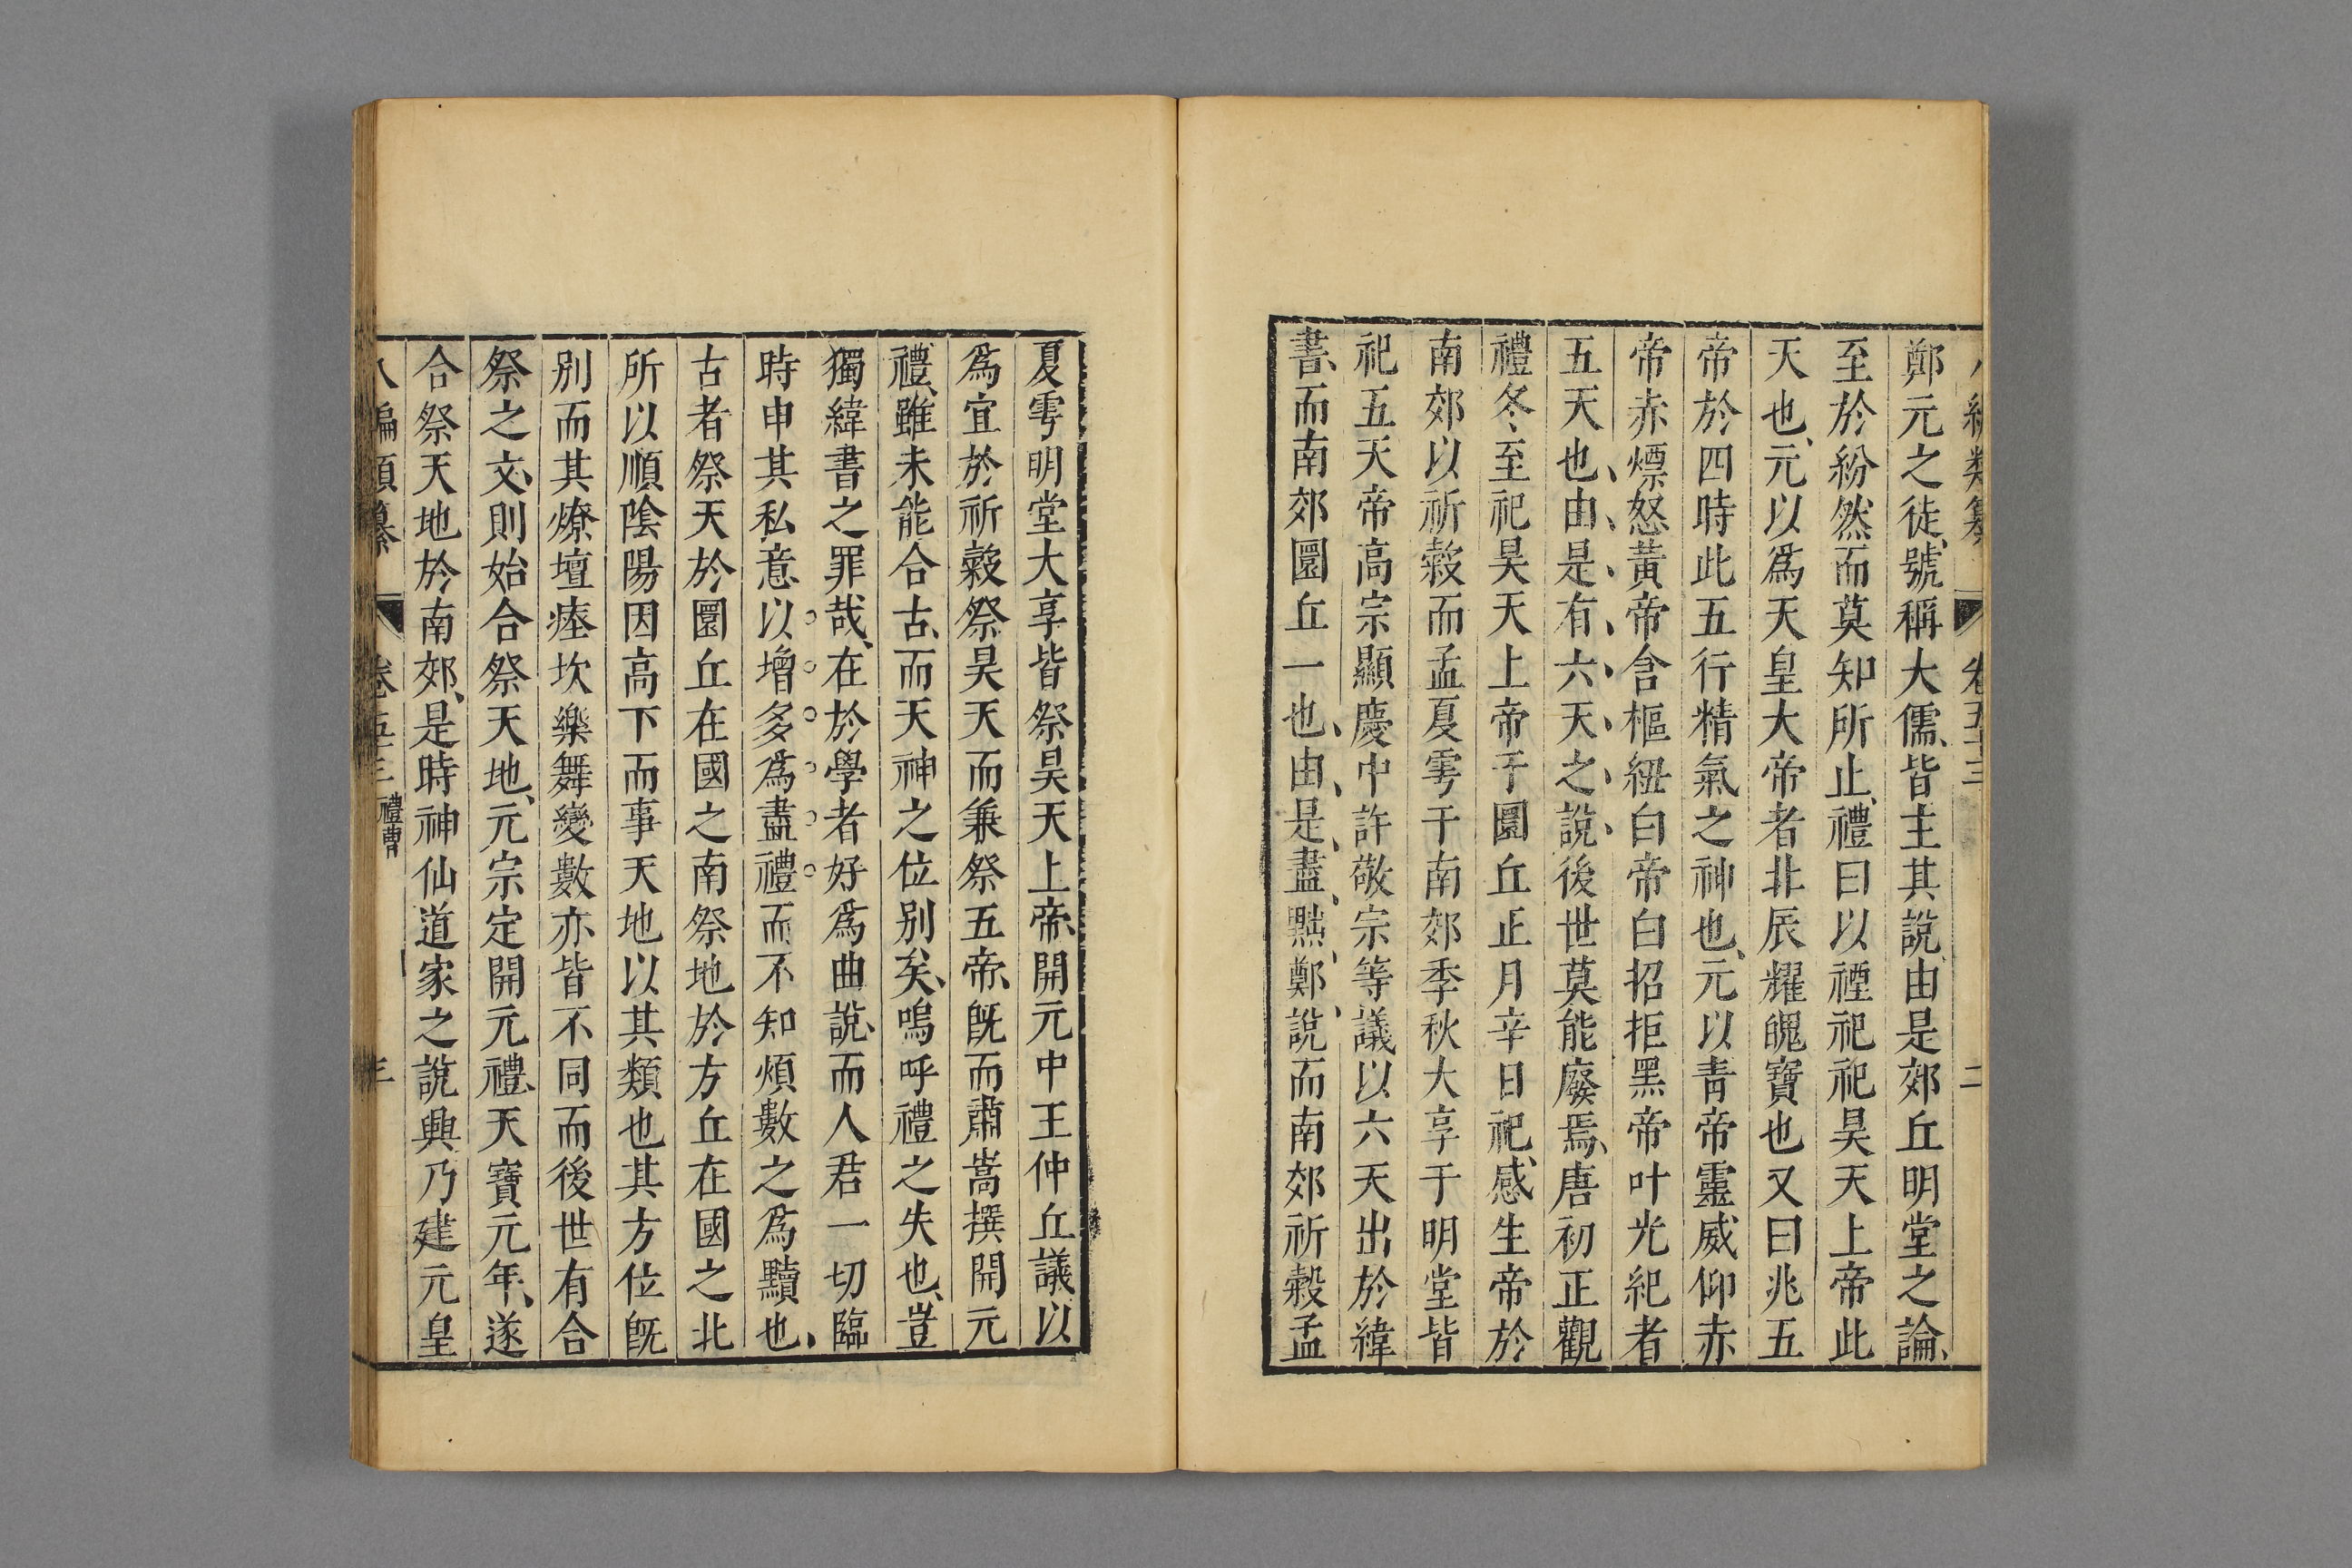 八編類纂 卷五十三 二
鄭元之徒、號稱大儒、皆主其說、由是郊丘明堂之論、
至於紛然而莫知所止、禮曰以禋祀祀昊天上帝此
天也、元以爲天皇大帝者北辰耀魄寶也又曰兆五
帝於四時此五行精氣之神也、元以青帝靈威仰赤
帝赤熛怒黃帝含樞紐白帝白招拒黑帝叶光紀者
五天也、由是有六天之說、後世莫能廢焉、唐初正觀
禮冬至祀昊天上帝于圜丘正月辛日祀、感生帝於
南郊以祈穀而孟夏雩于南郊季秋大享于明堂皆
祀五天帝高宗顯慶中許敬宗等議以六天出於緯
書、而南郊圜丘一也、由是盡黜鄭說而南郊祈穀孟
夏雩明堂大享皆祭昊天上帝、開元中王仲丘議以
爲宜於祈穀祭昊天而兼祭五帝、旣而蕭嵩撰開元
禮、雖未能合古、而天神之位别矣、嗚呼禮之失也、豈
獨緯書之罪哉、在於學者好爲曲說、而人君一切臨
時申其私意以增多爲盡禮而不知煩數之爲黷也、
古者祭天於圜丘在國之南祭地於方丘在國之北
所以順陰陽因高下而事天地以其類也其方位旣
别而其燎壇瘞坎樂舞變數亦皆不同而後世有合
祭之文、則始合祭天地、元宗定開元禮、天寶元年、遂
合祭天地於南郊、是時神仙道家之說興乃建元皇
八編類纂 卷五十三 禮曹 三